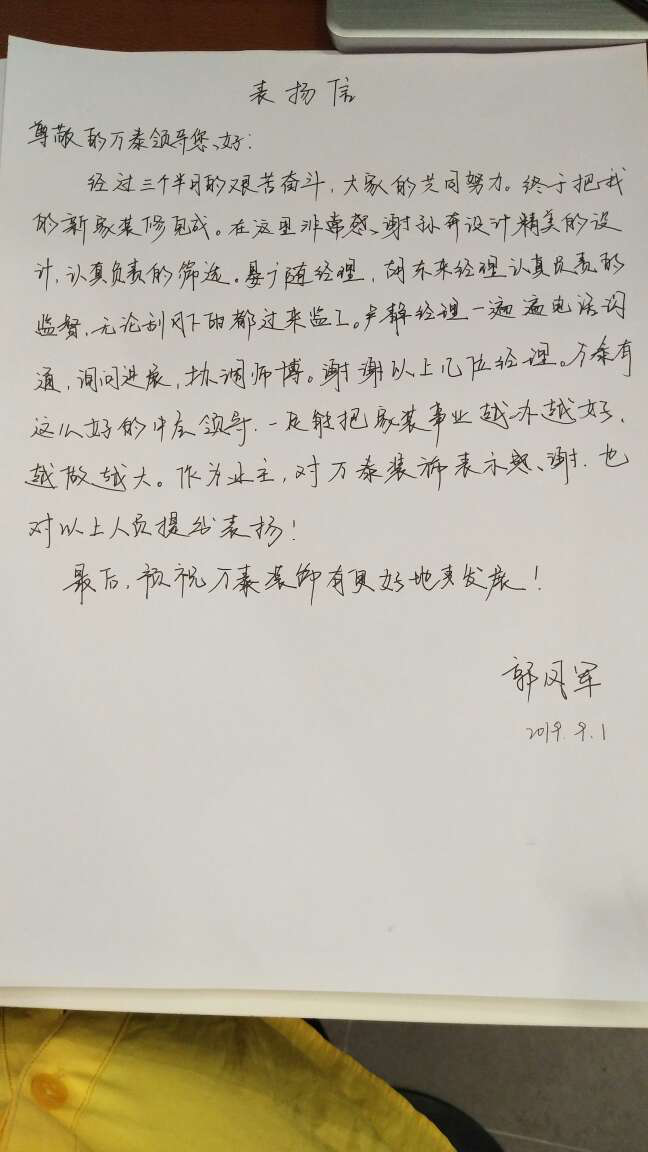 表扬信
尊敬的万泰领导您好:
经过三个半月的艰苦奋斗,大家的共同努力。终于把我
的新家装修完成。在这里非常感谢孙奔设计精美的设
计,认真负责的筛选。晏广随经理,胡东来经理认真负责的
监督,无论刮风下雨都过来监工。尹静经理一遍遍电话沟
通,询问进展,协调师傅。谢谢以上几位经理。万泰有
这么好的中层领导.一定能把家装事业越办越好,
越做越大。作为业主,对万泰装饰表示感谢.也
对以上人员提出表扬!
最后,预祝万泰装饰有更好地发展!
郭风军
2019.9.1